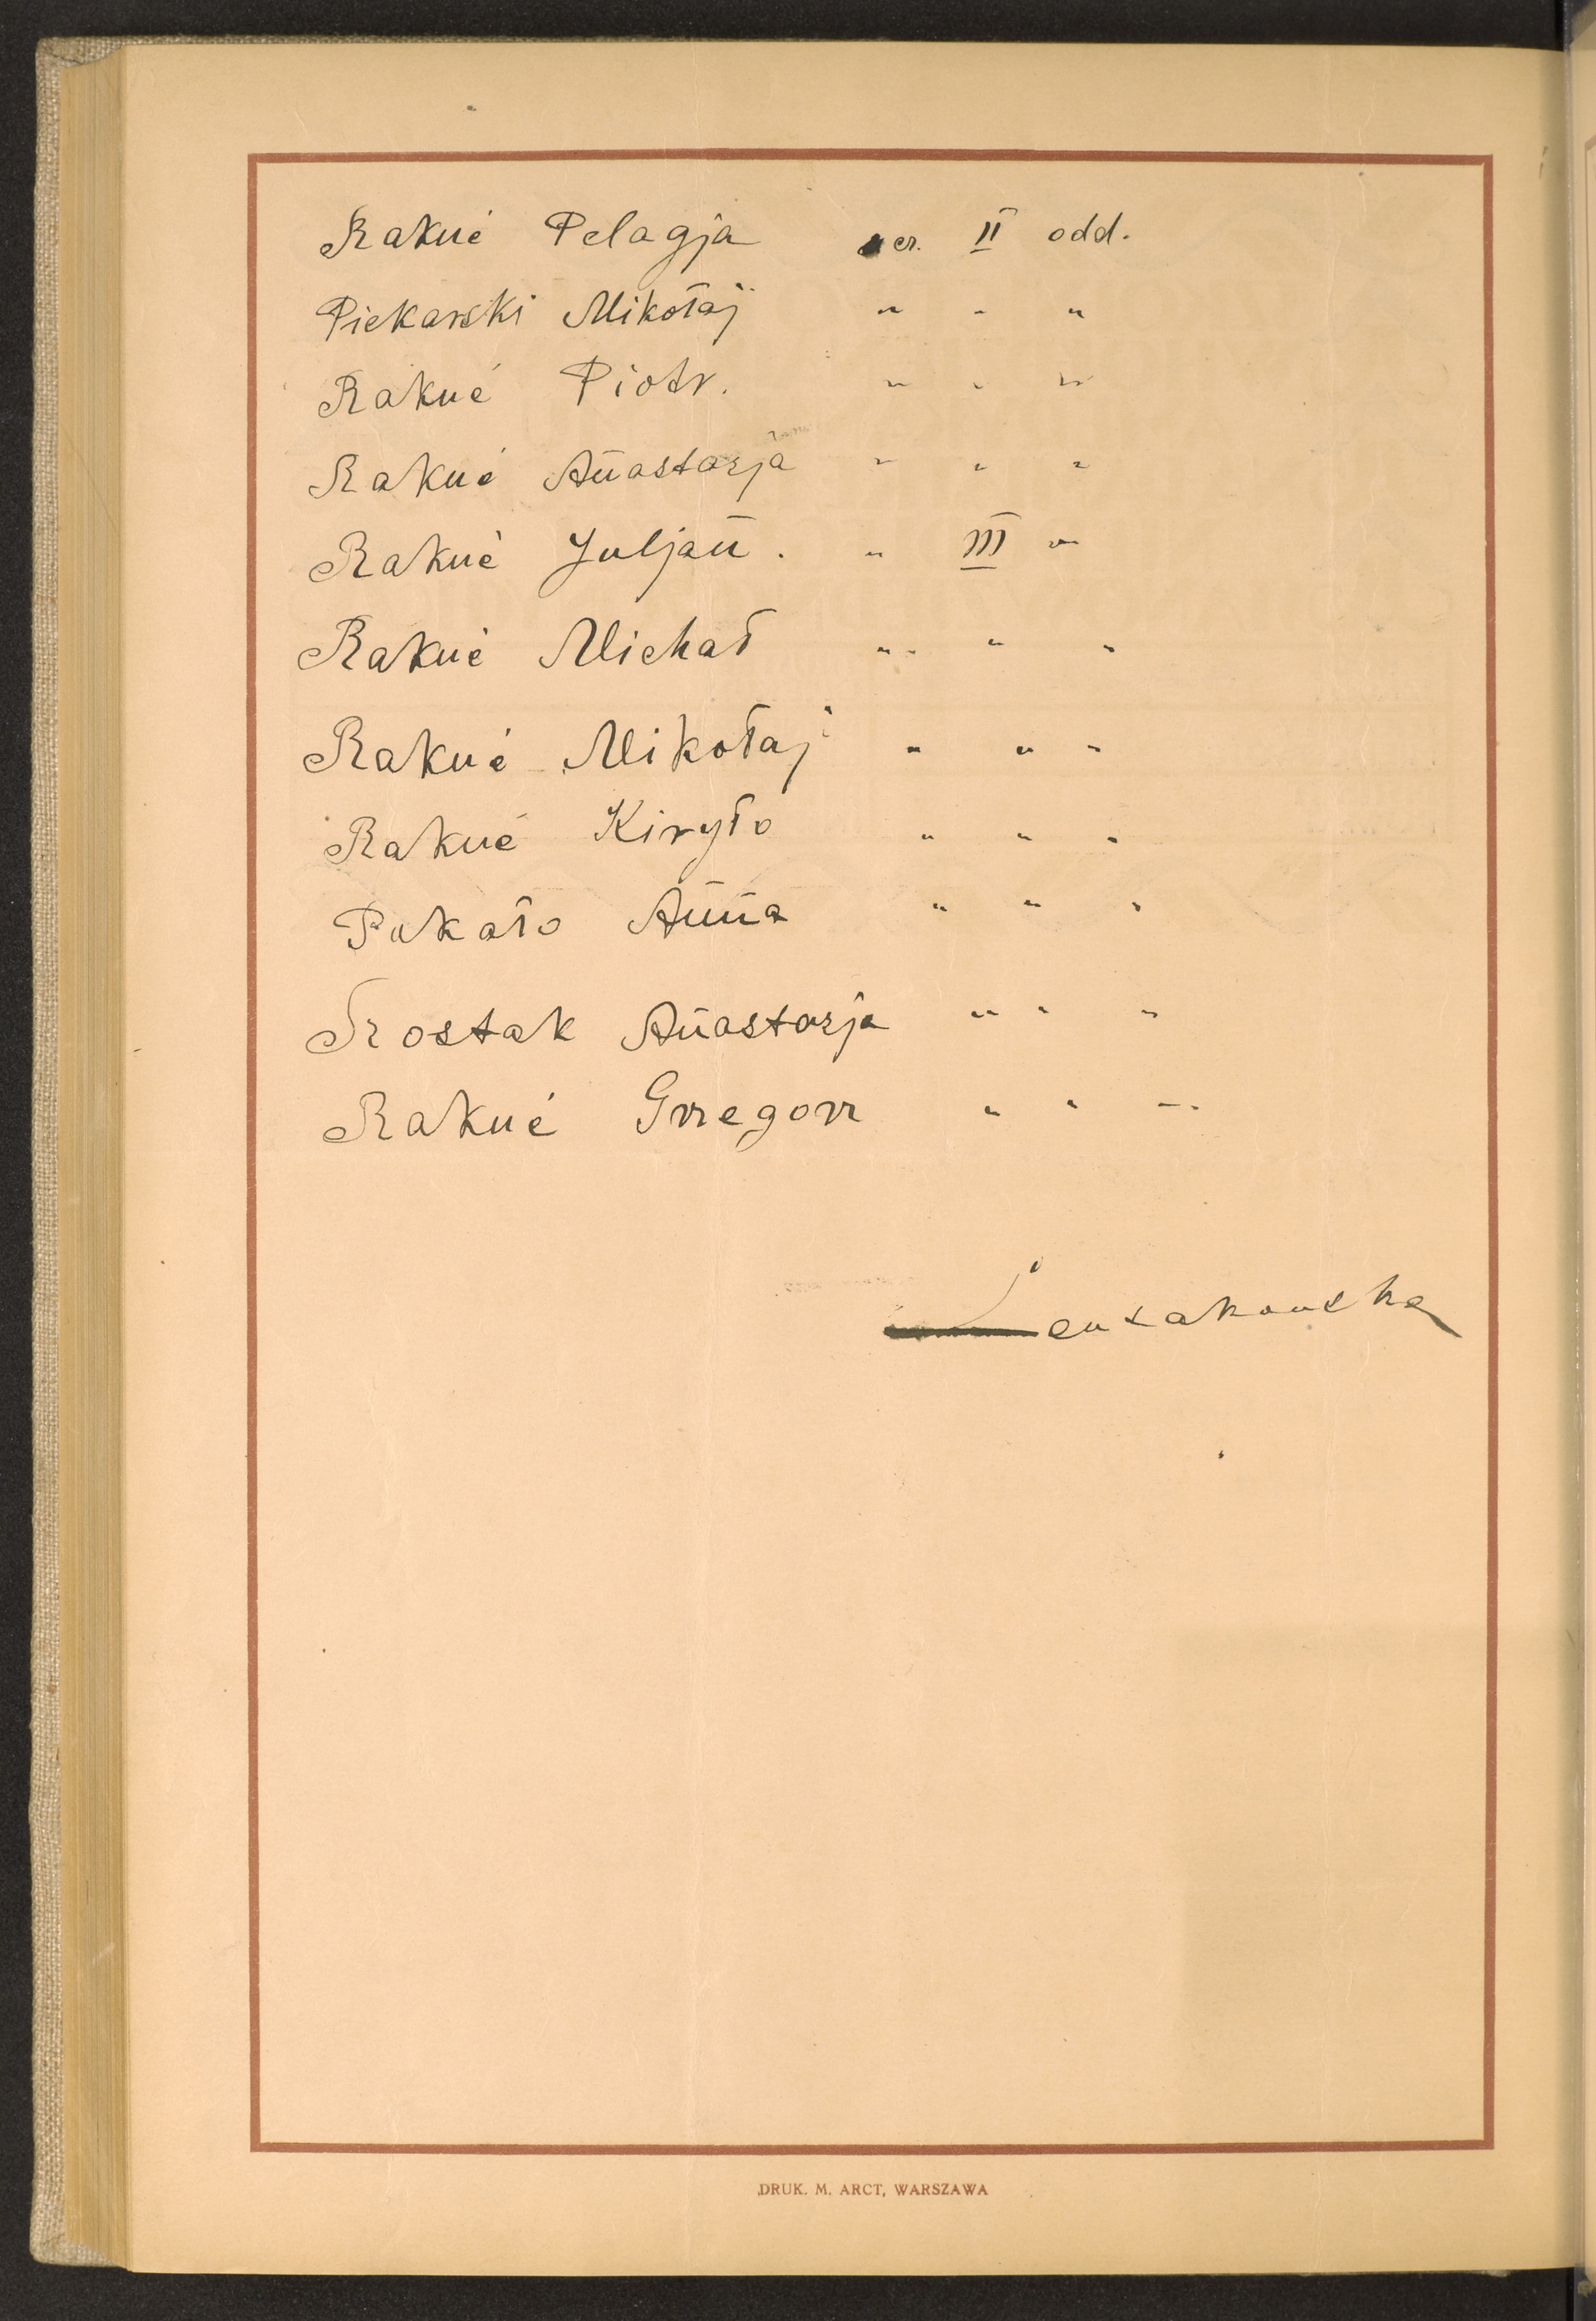 Rakuć Pelagja ucz. II odd.
Piekarski Mikołaj " " "
Rakuć Piotr. " " "
Rakuć Anastazja " " "
Rakuć Juljan. " III "
Rakuć Michał " " "
Rakuć Mikołaj " " "
Rakuć Kiryło " " "
Pukało Anna " " "
Rostak Anastazja " " "
Rakuć Grzegorz " " "
DRUK. M. ARCT, WARSZAWA